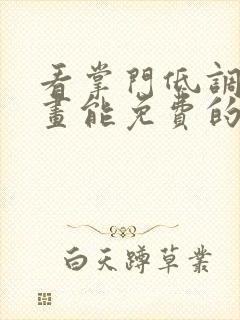 看掌門低調
畫能免費的
白天蹲草業